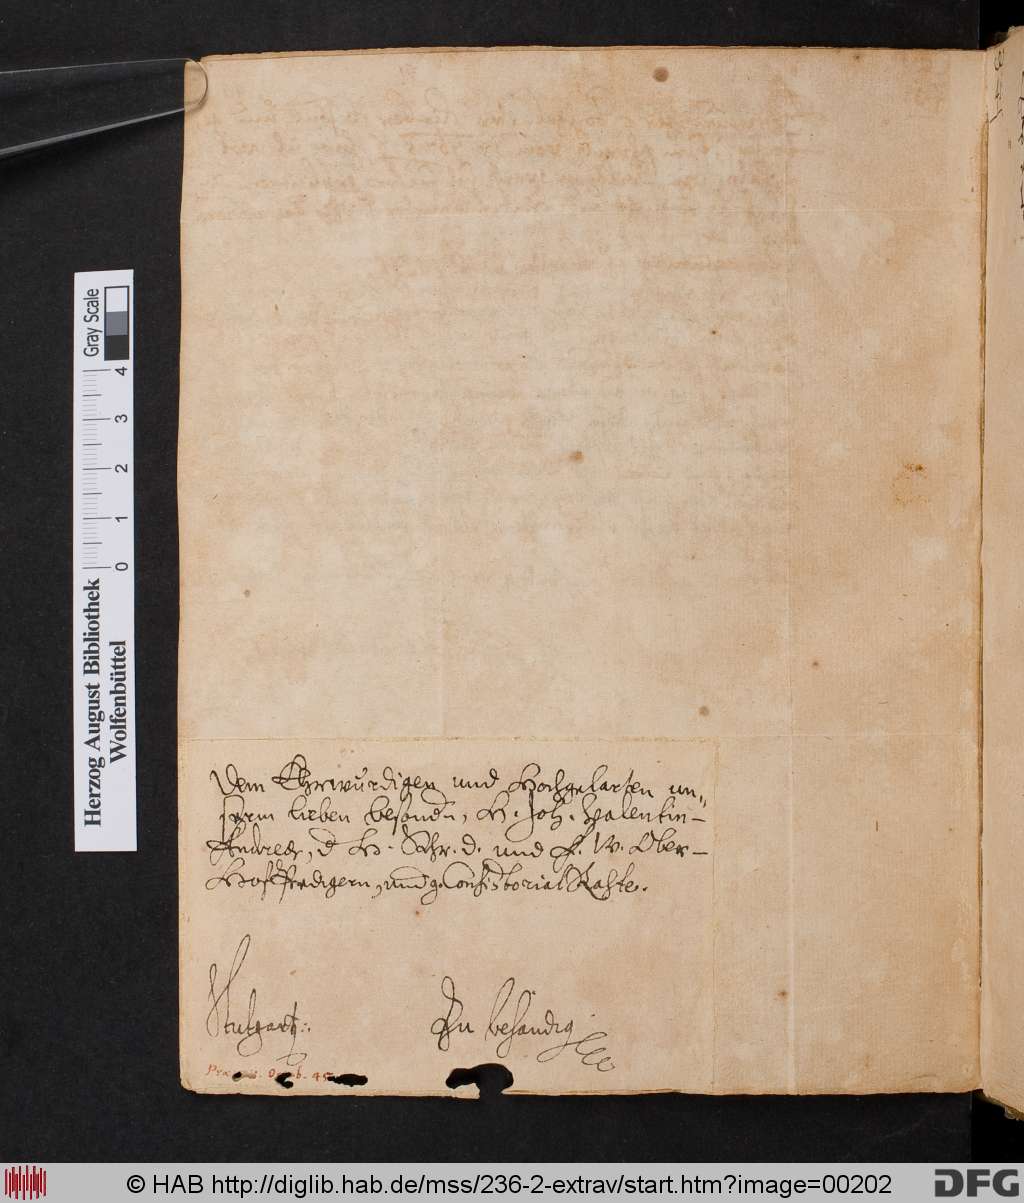 Dem Ehrwürdigen und Hochgelarten un„
serm lieben besondn, H. Joh. Valentin–
Andreæ, d H. Schr. d. und F. W. Ober–
HofPredigern, und g. Consistorial Rahte.
Stutgart:.
Zu behändig
45
Herzog August Bibliothek
Wolfenbüttel
0 1 2 3 4
Gray Scale
© HAB http://diglib.hab.de/mss/236-2-extrav/start.htm?image=00202
DFG